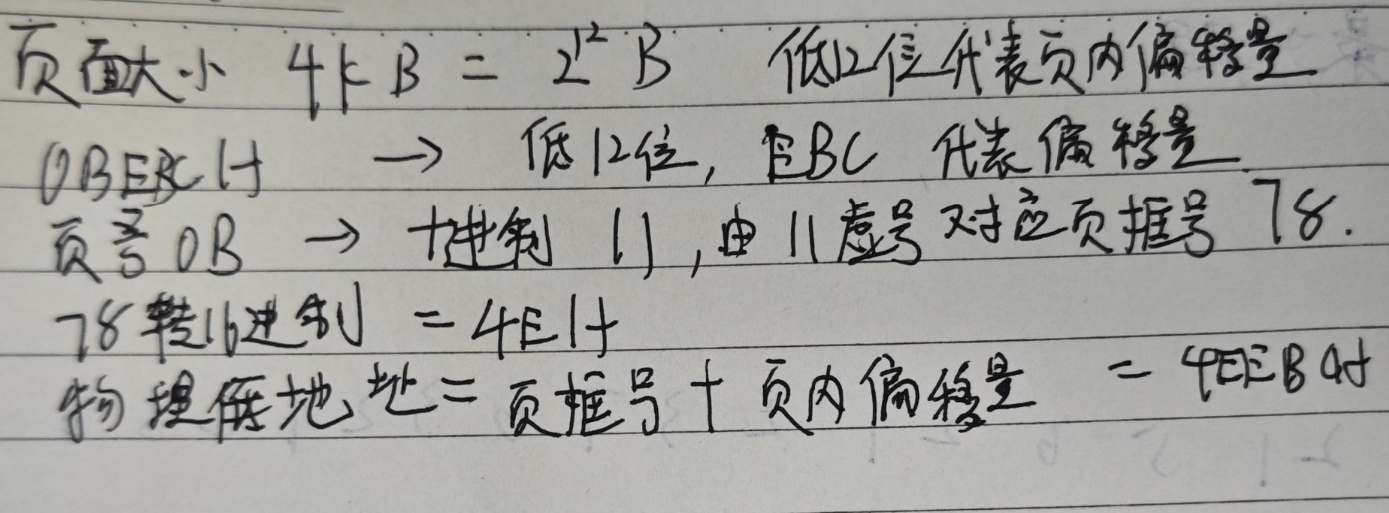 页面大小 4KB = 2¹² B 低12位代表页内偏移量
0BEBCH → 低12位, EBC 代表偏移量
页号 0B → 十进制 11, 由 11 虚号对应页框号 78.
78转16进制 = 4EH
物理地址 = 页框号 + 页内偏移量 = 4EEBCH